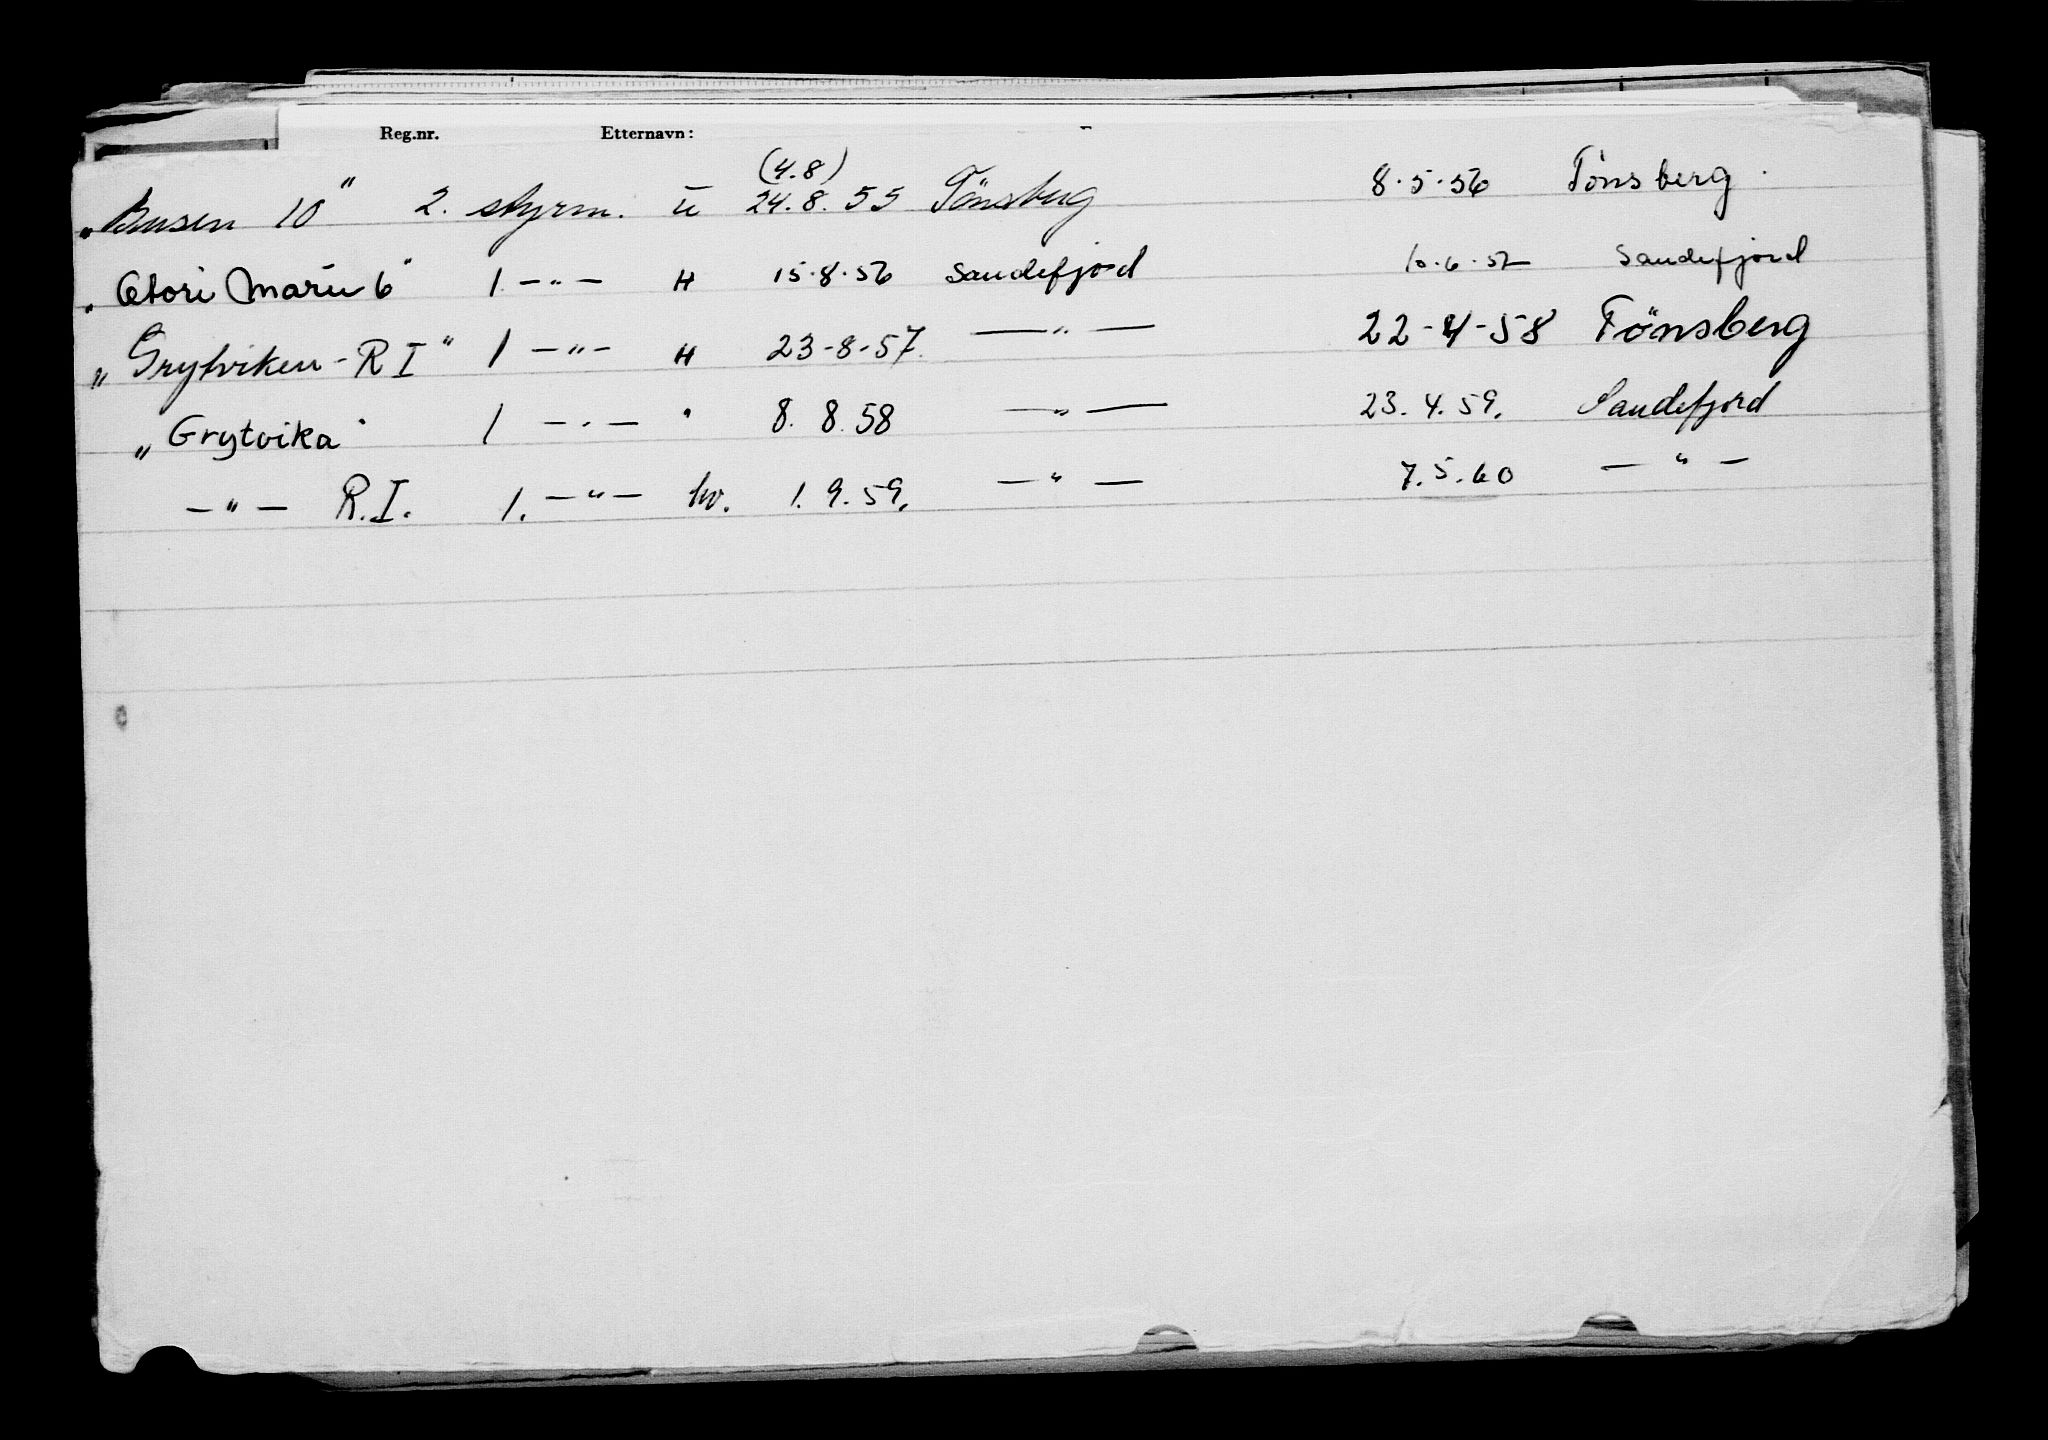 Reg.nr. Etternavn:
(4.8)
„Busen 10" 2. styrm. u 24.8.55 Tönsberg 8.5.56 Tönsberg.
„Otori Maru 6" 1 —"— H 15.8.56 Sandefjord 10.6.57 Sandefjord
„Grytviken - R I" 1 —"— H 23-8-57. —"— 22-4-58 Tönsberg
„Grytvika" 1 —"— " 8.8.58 —"— 23.4.59. Sandefjord
—"— R.I. 1. —"— hv. 1.9.59. —"— 7.5.60 —"—